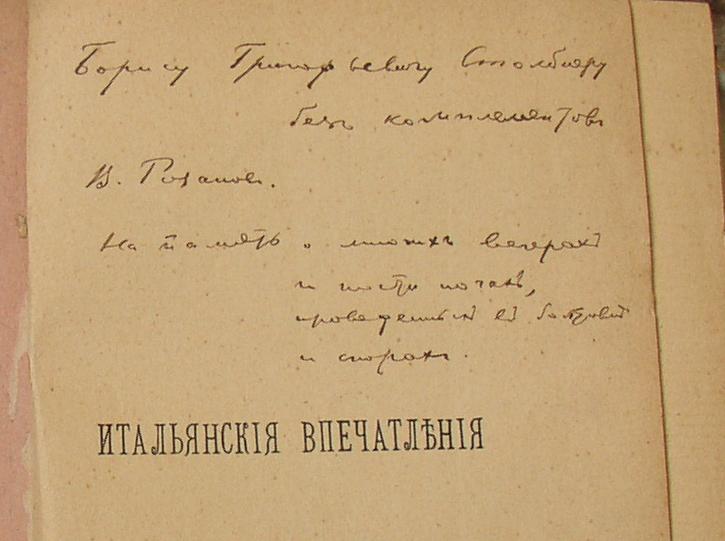 Борису Григорьевичу Столпнеру
безъ комплементовъ
В. Розановъ.
На память о многихъ вечерахъ
и почти ночахъ,
проведенныхъ въ болтовнѣ
и спорахъ.
ИТАЛЬЯНСКІЯ ВПЕЧАТЛѢНІЯ